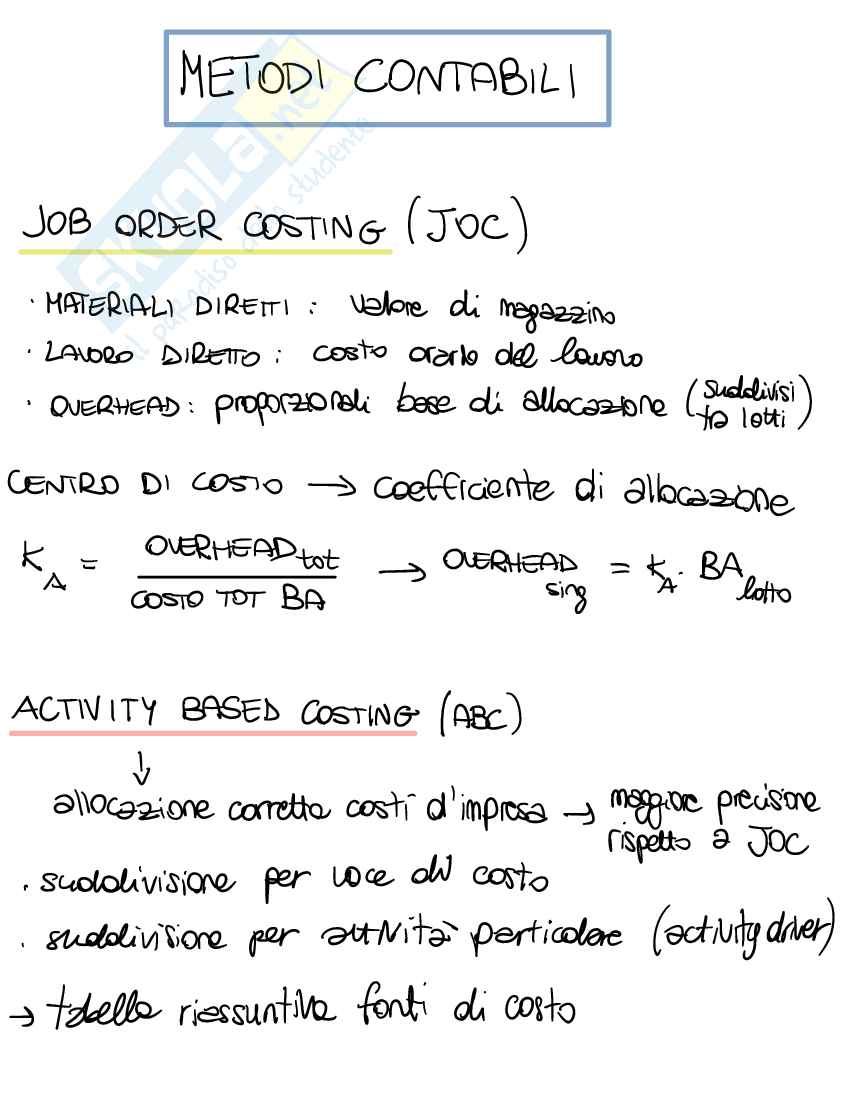 METODI CONTABILI
SKUOLA.net
il paradiso dello studente
JOB ORDER COSTING (JOC)
· MATERIALI DIRETTI : valore di magazzino
· LAVORO DIRETTO : costo orario del lavoro
· OVERHEAD : proporzionali base di allocazione (suddivisi tra lotti)
CENTRO DI COSTO → coefficiente di allocazione
K_A = OVERHEAD_tot / COSTO TOT BA → OVERHEAD_sing = K_A · BA_lotto
ACTIVITY BASED COSTING (ABC)
↓
allocazione corretta costi d'impresa → maggiore precisione rispetto a JOC
· suddivisione per voce di costo
· suddivisione per attività particolare (activity driver)
→ tabella riassuntiva fonti di costo